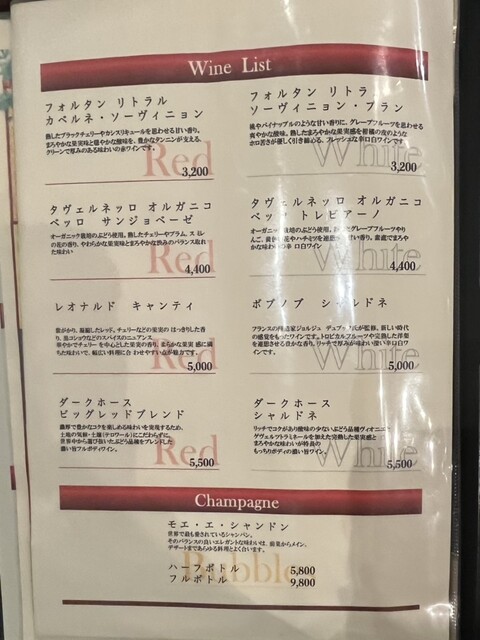 Wine List
フォルタン リトラル
カベルネ・ソーヴィニョン
熟したブラックチェリーやカシスリキュールを思わせる甘い香り。
まろやかな果実味と穏やかな酸味を、豊かなタンニンが支える、
クリーンで厚みのある味わいの赤ワインです。
Red
3,200
フォルタン リトラ
ソーヴィニョン・ブラン
桃やパイナップルのような甘い香りに、グレープフルーツを思わせる
爽やかな酸味。熟したまろやかな果実感を柑橘の皮のような
ホロ苦さが優しく引き締める、フレッシュな辛口白ワインです
White
3,200
タヴェルネッロ オルガニコ
ペッロ サンジョベーゼ
オーガニック栽培のぶどう使用。熟したチェリーやプラム、スミレ
の花の香り。やわらかな果実味とまろやかな渋みのバランス取れ
た味わい
Red
4,400
タヴェルネッロ オルガニコ
ペッ トレビアーノ
オーガニック栽培のぶどう使用。
White
4,400
レオナルド キャンティ
豊かがり、凝縮したレッド。チェリーなどの果実の はっきりした香
り、黒コショウなどのスパイスのニュアンス。
華やかでチェリー を中心とした果実の香り、まろやかな果実 感に満
ちた味わいで、幅広い料理に合 わせやすい点が魅力です。
Red
5,000
ボブノブ シャルドネ
フランスの醸造家ジョルジュ デュブッフ氏が監修。新しい時代
の感覚をもったワインです。トロピカルフルーツや完熟した洋梨
を連想させる豊かな香り。リッチで厚みが味わい深い辛口白ワイ
ンです。
White
5,000
ダークホース
ビッグレッドブレンド
濃厚で豊かなコクを楽しめる味わいを実現するため、
土地の気候・土壌(テロワール)にこだわらずに、
世界中から選び抜いたぶどう品種をブレンドした
濃い旨フルボディワイン。
Red
5,500
ダークホース
シャルドネ
リッチでコクがあり酸味の少ないぶどう品種ヴィオニエと
ゲヴェルツトラミネールを加えた完熟した果実感と
まろやかな味わいが特長の
もっちりボディの濃い旨ワイン。
White
5,500
Champagne
モエ・エ・シャンドン
世界で最も愛されているシャンパン。
そのバランスの良いエレガントな味わいは、前菜からメイン、
デザートまであらゆる料理とよく合います。
Bubble
ハーフボトル 5,800
フルボトル 9,800